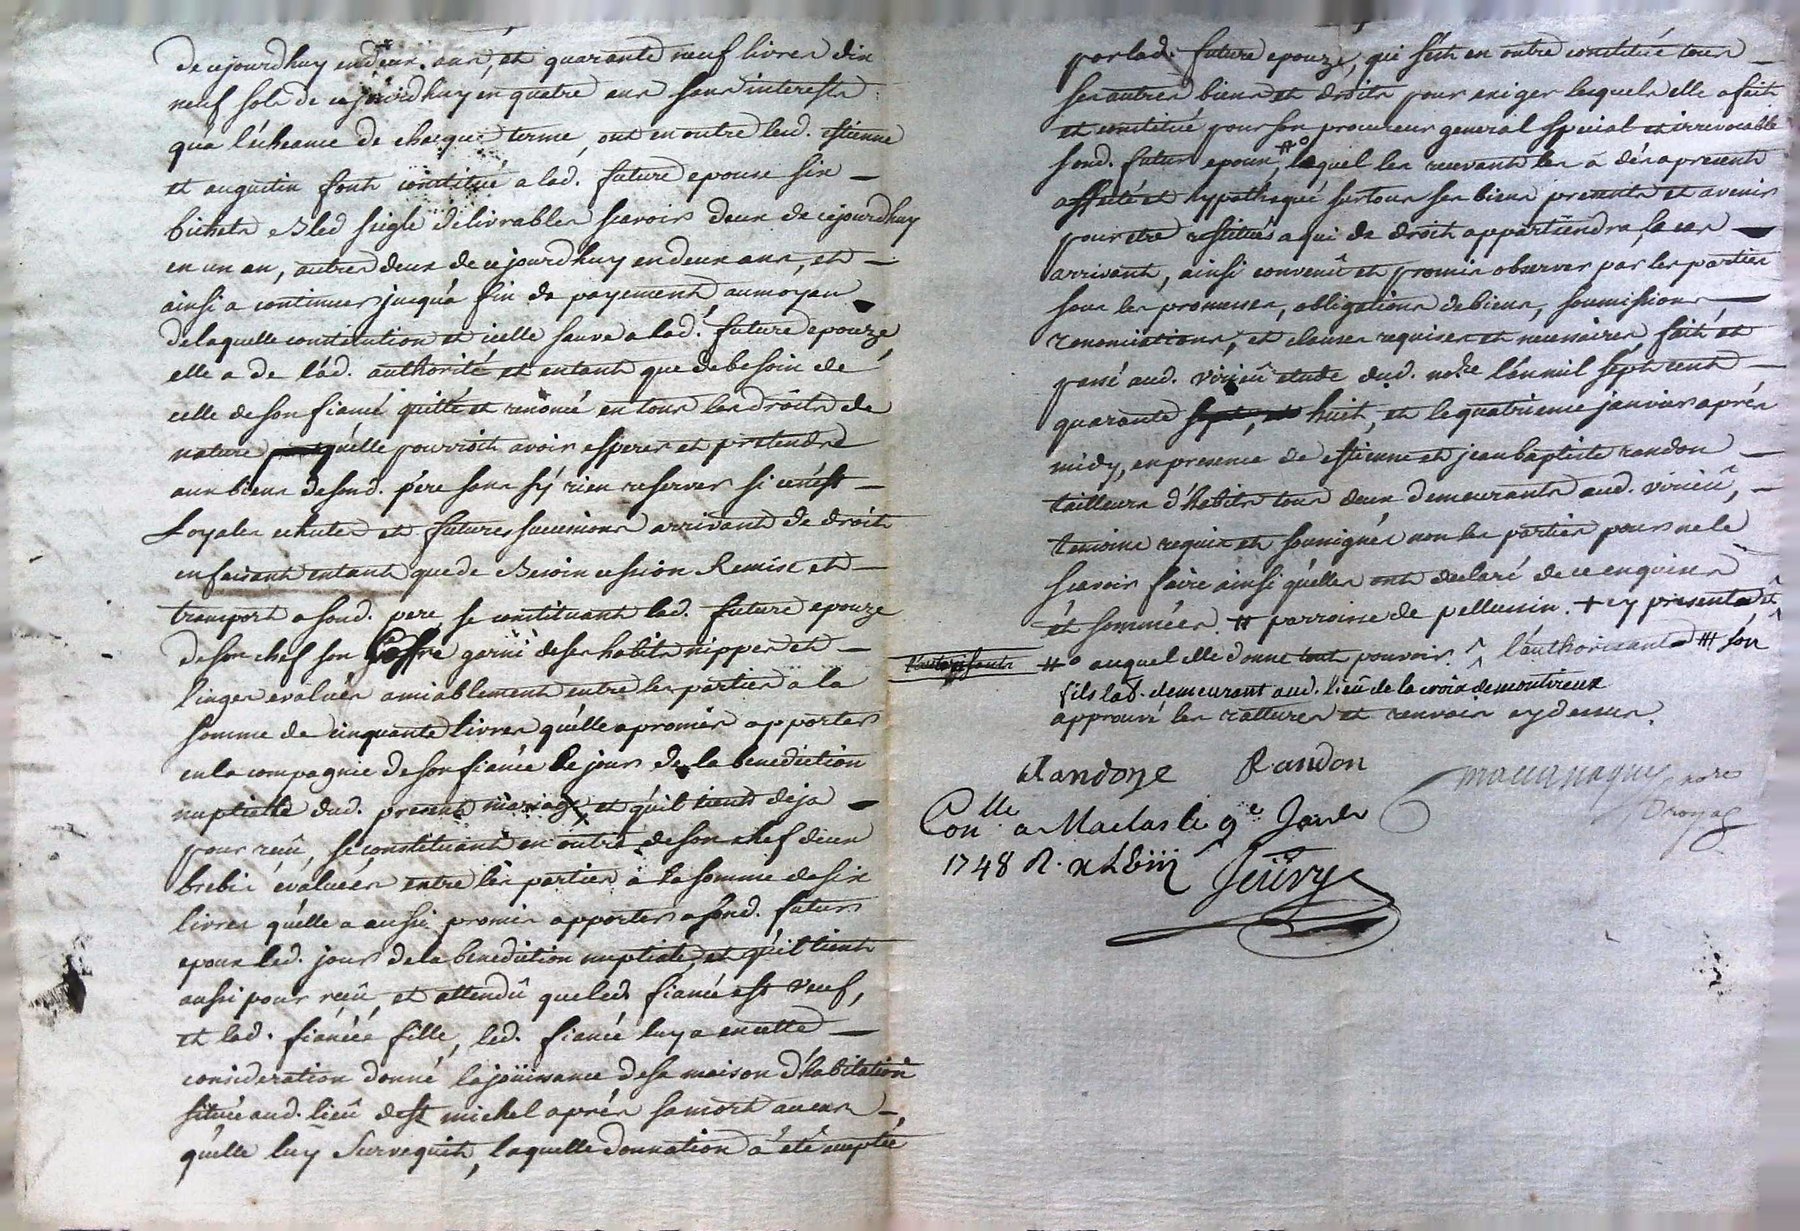 de cejourdhuy en deux ans, et quarante neuf livres dix
neuf sols de cejourdhuy en quatre ans sans interests
qu'a l'écheance de chaque terme, ont en outre lesd. estienne
et augustin font constitué a lad. future epouse six
bichets Bled seigle délivrables scavoir deux de cejourdhuy
en un an, autres deux de cejourdhuy en deux ans, et
ainsi a continuer jusqu'a fin de payement, au moyen
de laquelle constitution et icelle sauve a lad. future epouze
elle a de l'ad. authorité et entant que de besoin de
celle de son fiancé quitté et renoncé en tous les droits de
nature qu'elle pourroit avoir esperer et pretendre
aux biens de sond. père sans s'y rien reserver si ce n'est
Loyales echutes et futures successions arrivant de droit
en faisant entant que de Besoin cession Remise et
transport a sond. pere, se constituant lad. future epouze
de son chef son Coffre garni de ses habits nippes et
linges evalués amiablement entre les parties a la
somme de cinquante livres qu'elle a promis apporter
en la compagnie de son fiancé le jour de la benediction
nuptialle dud. present mariage et qu'il tient deja
pour reçû, se constituant en outre de son chef deux
brebis évaluées entre les parties a la somme de six
livres qu'elle a aussi promis apporter a sond. futur
epoux led. jour de la benediction nuptiale, et qu'il tient
aussi pour reçû, et attendû que led. fiancé est veuf,
et lad. fiancée fille, led. fiancé luy a en cette
consideration donné la joüissance de sa maison d'habitation
située aud. lieû de St michel après sa mort au cas
qu'elle luy Survequit, laquelle donnation a été acceptée
par lad. future epouze, qui s'est en outre constitué tous
ses autres biens et droits pour exiger lesquels elle a fait
et constitué pour son procureur general special et irrevocable
sond. futur epoux, #° lequel les recevant les a dès apresent
assuré et hypothequé sur tous ses biens presents et avenir
pour etre restitués a qui de droit appartiendra, le cas
arrivant, ainsi convenû et promis observer par les parties
sous les promesses, obligations de biens, soumissions,
renonciations, et clauses requises et necessaires, fait et
passé aud. virieû etude dud. nore l'an mil sept cent
quarante huit, et le quatrieme janvier après
midy, en presence de estienne et jean baptiste randon
tailleurs d'habits tous deux demeurants aud. virieû,
temoins requis et soussignés non les parties pour ne le
scavoir faire ainsi qu'elles ont declaré de ce enquises
et sommées. # parroisse de pellussin. + cy presente et
l'authorisant #° auquel elle donne tout pouvoir. ^ l'authorisant ### son
fils lad. demeurant aud. lieû de la croix de montvieux
approuvé les rattures et renvois cy dessus.
Randone Randon
nore
Royal
Conlle a Maclas le 9e Janvr
1748 R.